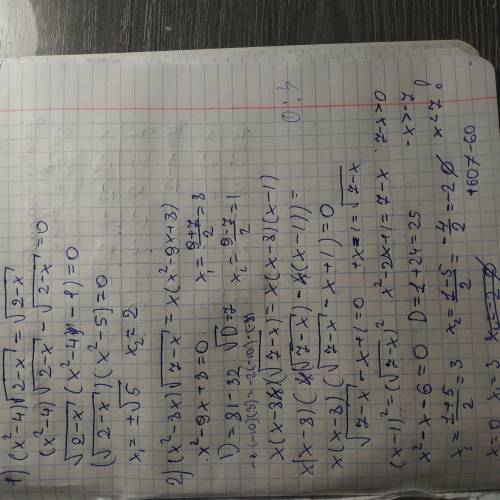 1) (x²-4)√2-x = √2-x
(x²-4)√2-x - √2-x = 0
√2-x (x²-4-1) = 0
(√2-x)(x²-5) = 0
x₁ = ±√5 x₂ = 2
2) (x²-8x)√7-x = x(x²-9x+8)
x²-9x+8=0 x₁ = 9+7/2 = 8
D = 81-32 √D=7 x₂ = 9-7/2 = 1
x(x-8)(√7-x) = x(x-8)(x-1)
x(x-8)(√7-x) - x(x-1)) =
x(x-8)(√7-x - x+1) = 0
√7-x - x+1 = 0 +x-1 = √7-x
(x-1)² = (√7-x)² x²-2x+1 = 7-x 7-x>0
x²-x-6=0 D=1+24=25 -x>-7
x₁ = 1+5/2 = 3 x₂ = 1-5/2 = -4/2 = -2 ∅ x<7
x=0 x=3